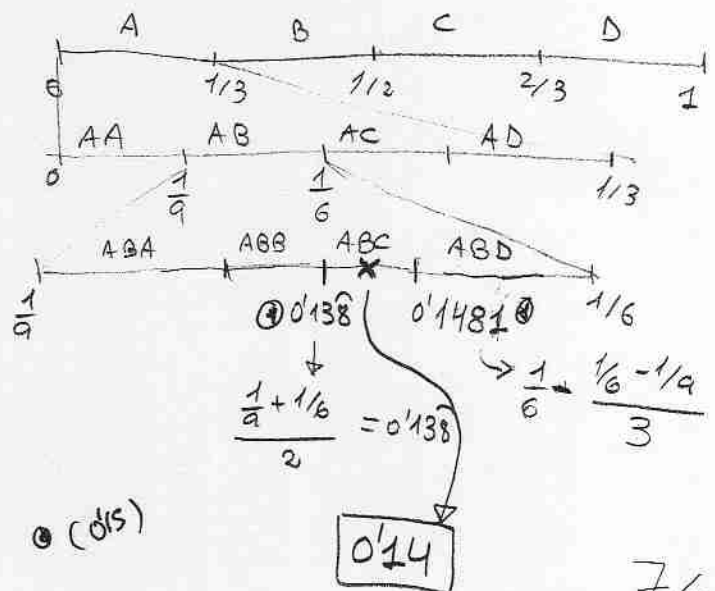 A B C D
0 1/3 1/2 2/3 1
AA AB AC AD
0 1/9 1/6 1/3
ABA ABB ABC ABD
1/9 0'138̂ 0'1481 1/6
(1/9 + 1/6)/2 = 0'138̂
1/6 - (1/6 - 1/9)/3
(0'15)
0'14